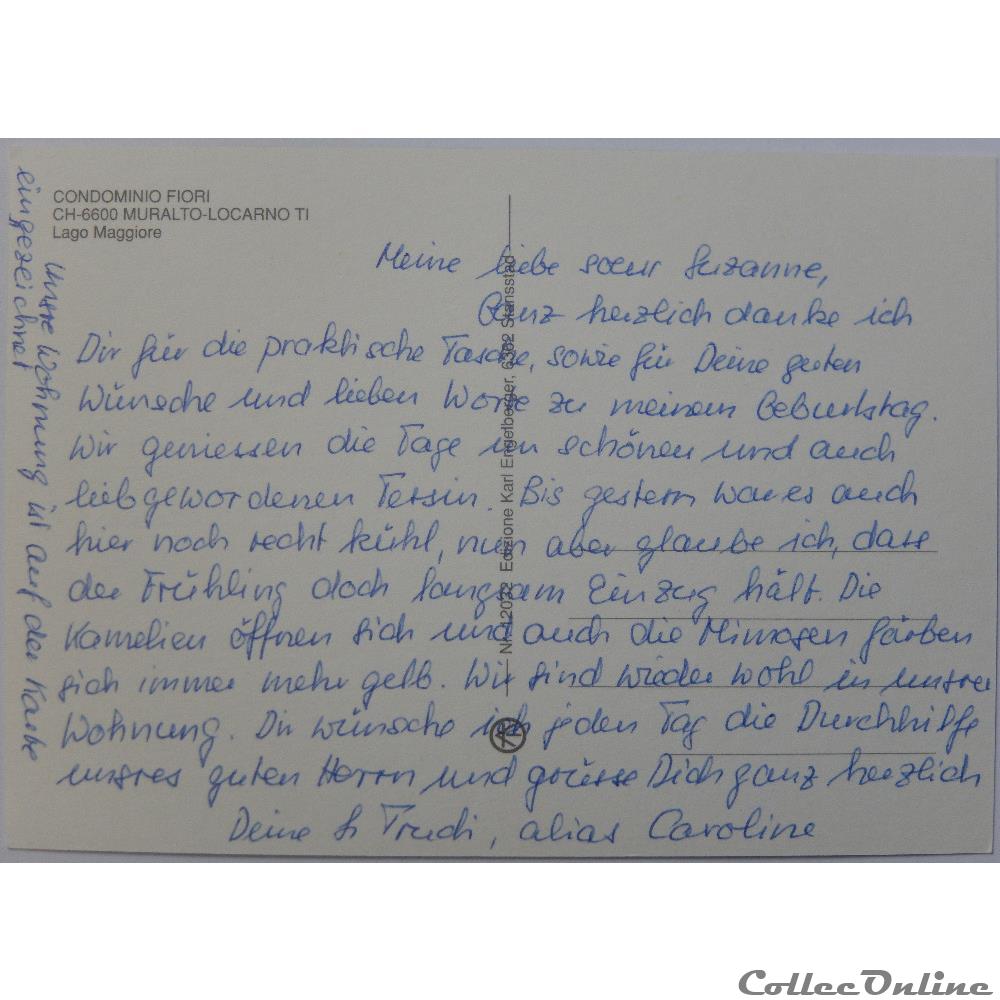 CONDOMINIO FIORI
CH-6600 MURALTO-LOCARNO TI
Lago Maggiore
Meine liebe soeur Suzanne,
Ganz herzlich danke ich
Dir für die praktische Tasche, sowie für Deine guten
Wünsche und lieben Worte zu meinem Geburtstag.
Wir geniessen die Tage im schönen und auch
liebgewordenen Tessin. Bis gestern war es auch
hier noch recht kühl, nun aber glaube ich, dass
der Frühling doch langsam Einzug hält. Die
Kamelien öffnen sich und auch die Mimosen färben
sich immer mehr gelb. Wir sind wieder wohl in unsrer
Wohnung. Dir wünsche ich jeden Tag die Durchhilfe
unsres guten Herrn und grüsse Dich ganz herzlich
Deine Trudi, alias Caroline
Unsre Wohnung ist auf der Karte
eingezeichnet
Nr. 12032 Edizione Karl Engelberger, 6362 Stansstad
CollecOnline